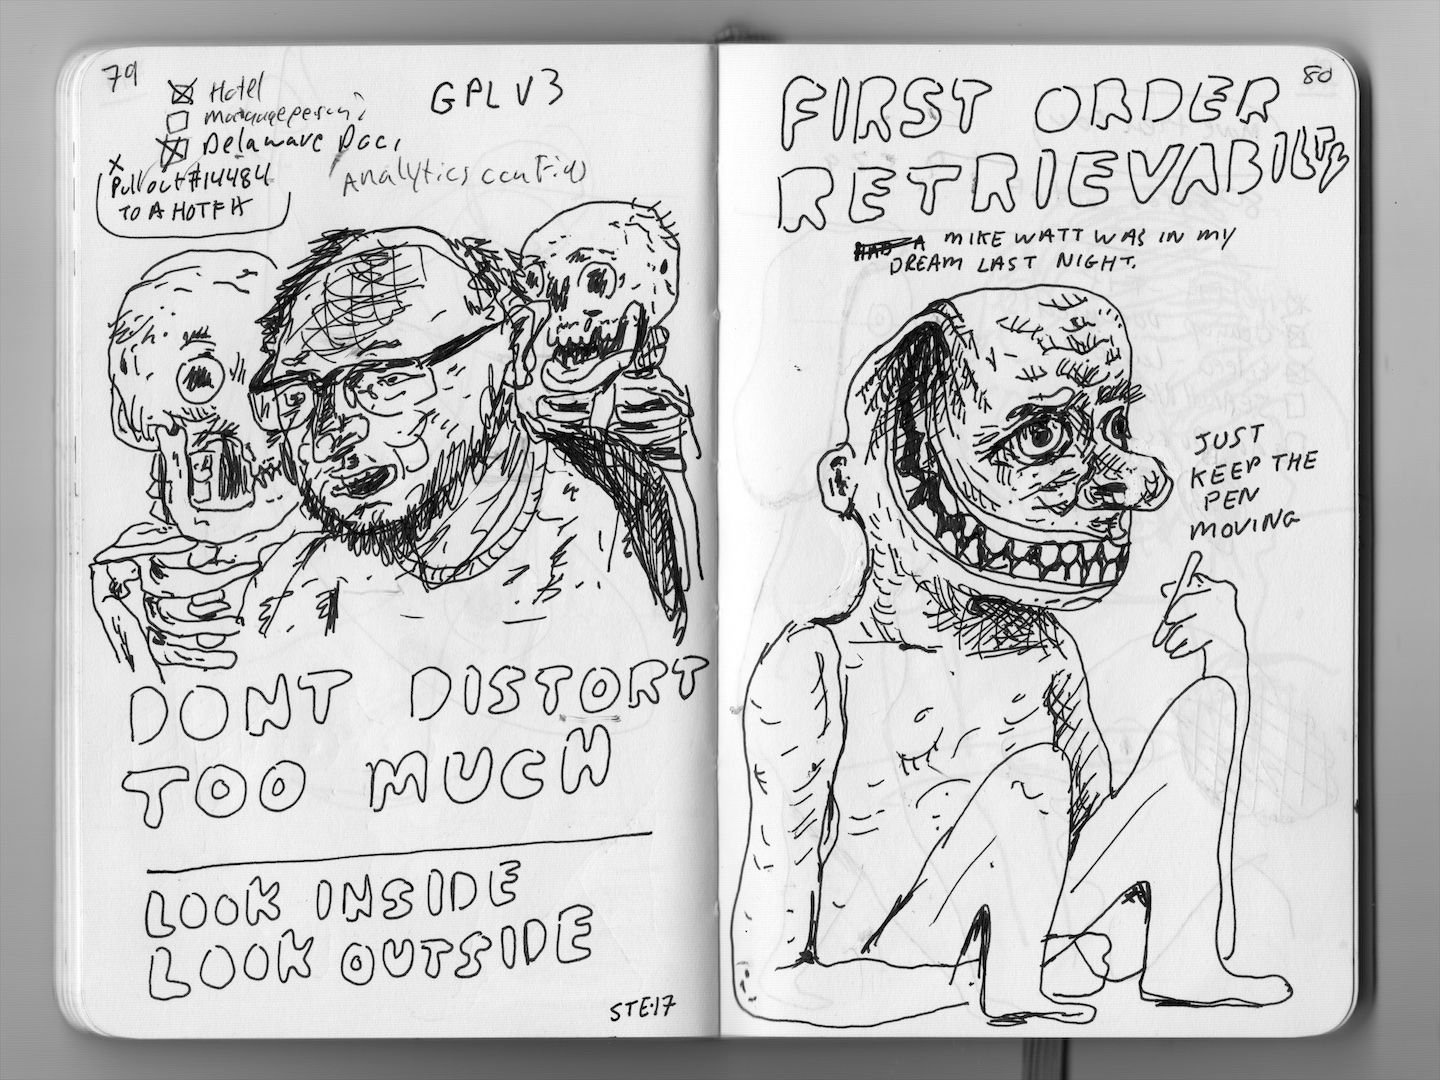 79
Hotel
GPL V3
Delaware Doc,
Pull out #14484
TO A HOTFIX
Analytics
DONT DISTORT
TOO MUCH
LOOK INSIDE
LOOK OUTSIDE
STE·17
80
FIRST ORDER
RETRIEVABILITY
A MIKE WATT WAS IN MY
DREAM LAST NIGHT.
JUST
KEEP THE
PEN
MOVING